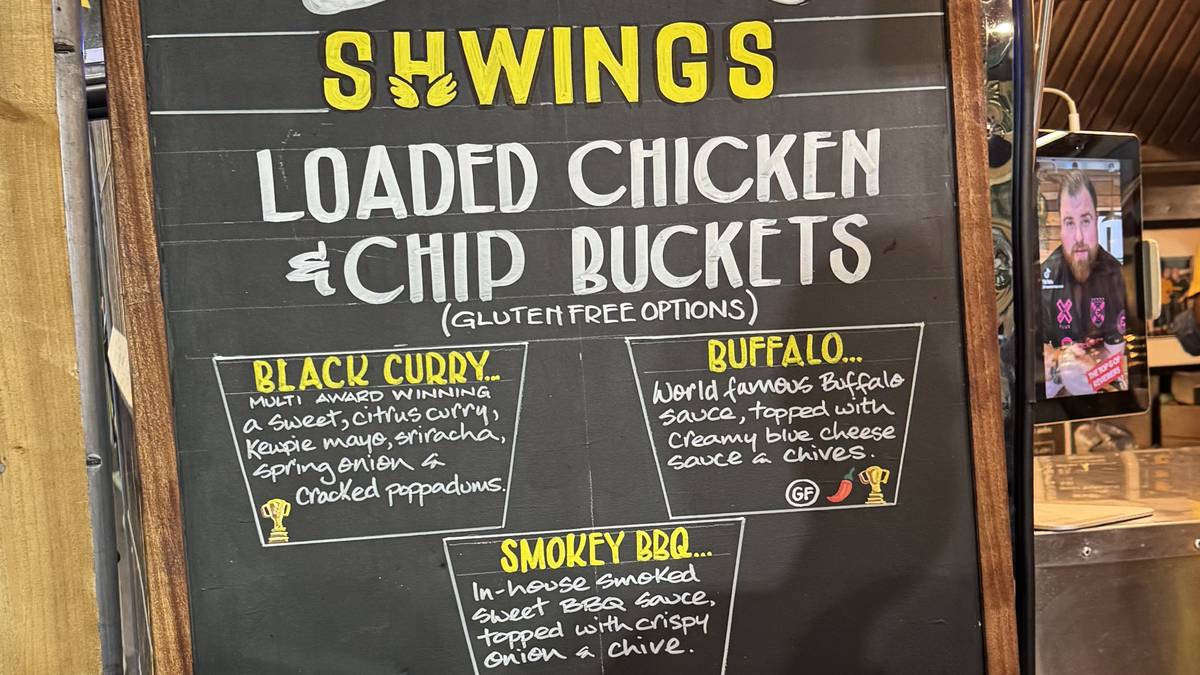 SHWINGS
LOADED CHICKEN
& CHIP BUCKETS
(GLUTEN FREE OPTIONS)
BLACK CURRY...
MULTI AWARD WINNING
a sweet, citrus curry,
Kewpie mayo, sriracha,
spring onion &
cracked poppadums.
BUFFALO...
World famous Buffalo
sauce, topped with
creamy blue cheese
sauce & chives.
GF
SMOKEY BBQ...
In-house smoked
sweet BBQ sauce,
topped with crispy
onion & chive.
THE TOP 5 OF